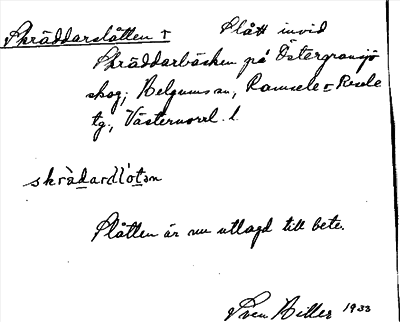 Skräddarslåtten † Slått invid
Skräddarbäcken på Östergransjö
skog; Helgums sn, Ramsele o. Resele
tg., Västernorrl. l.
skrädardlòtən
Slåtten är nu utlagd till bete.
Sven Hitter 1933